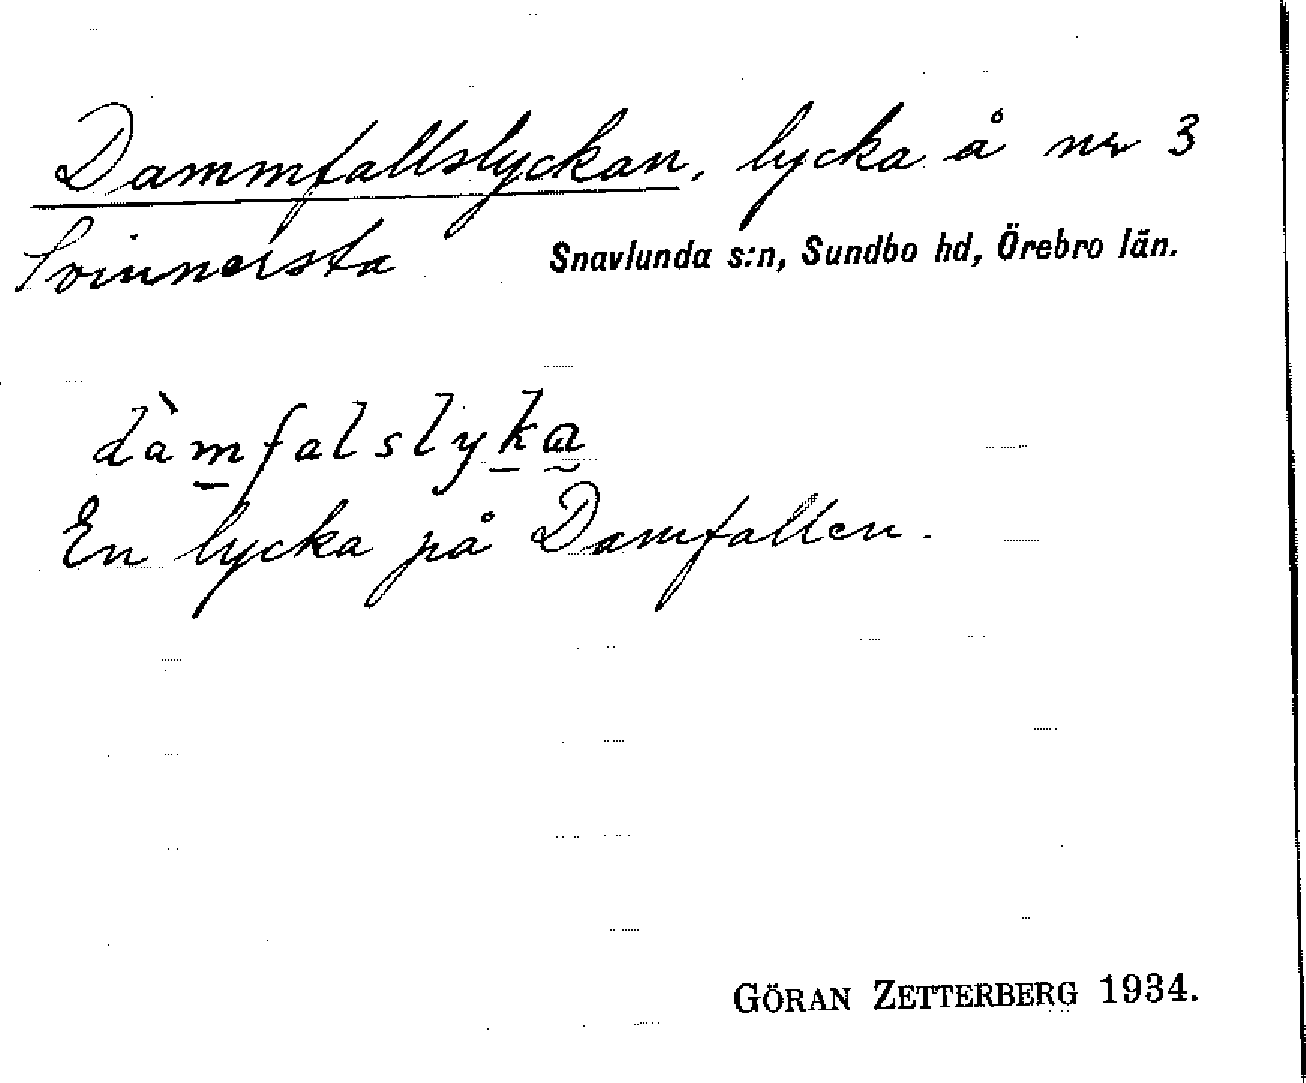 Dammfallslyckan, lycka å nr 3
Svinnersta Snavlunda s:n, Sundbo hd, Örebro län.
dàm̲falslyk̲a̰
En lycka på Damfallen.
GÖRAN ZETTERBERG 1934.